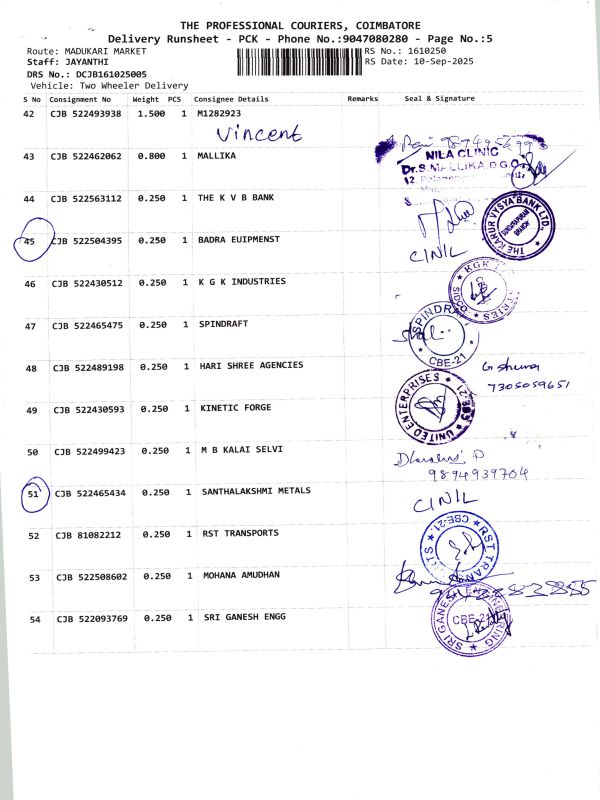 THE PROFESSIONAL COURIERS, COIMBATORE
Delivery Runsheet - PCK - Phone No.:9047080280 - Page No.:5
Route: MADUKARI MARKET RS No.: 1610250
Staff: JAYANTHI RS Date: 10-Sep-2025
DRS No.: DCJB161025005
Vehicle: Two Wheeler Delivery
S No Consignment No Weight PCS Consignee Details Remarks Seal & Signature
42 CJB 522493938 1.500 1 M1282923
Vincent
43 CJB 522462062 0.800 1 MALLIKA
NILA CLINIC
Dr.S.MALLIKA,D.G.O.
44 CJB 522563112 0.250 1 THE K V B BANK
THE KARUR VYSYA BANK LTD.
45 CJB 522504395 0.250 1 BADRA EUIPMENST CINIL
46 CJB 522430512 0.250 1 K G K INDUSTRIES
KGK SIDCO
47 CJB 522465475 0.250 1 SPINDRAFT
SPINDRA CBE-21
48 CJB 522489198 0.250 1 HARI SHREE AGENCIES
7305059651
49 CJB 522430593 0.250 1 KINETIC FORGE
UNITED ENTERPRISES
50 CJB 522499423 0.250 1 M B KALAI SELVI
9894939704
51 CJB 522465434 0.250 1 SANTHALAKSHMI METALS CINIL
52 CJB 81082212 0.250 1 RST TRANSPORTS
CBE-21 RST TRANS
53 CJB 522508602 0.250 1 MOHANA AMUDHAN
54 CJB 522093769 0.250 1 SRI GANESH ENGG
CBE-21